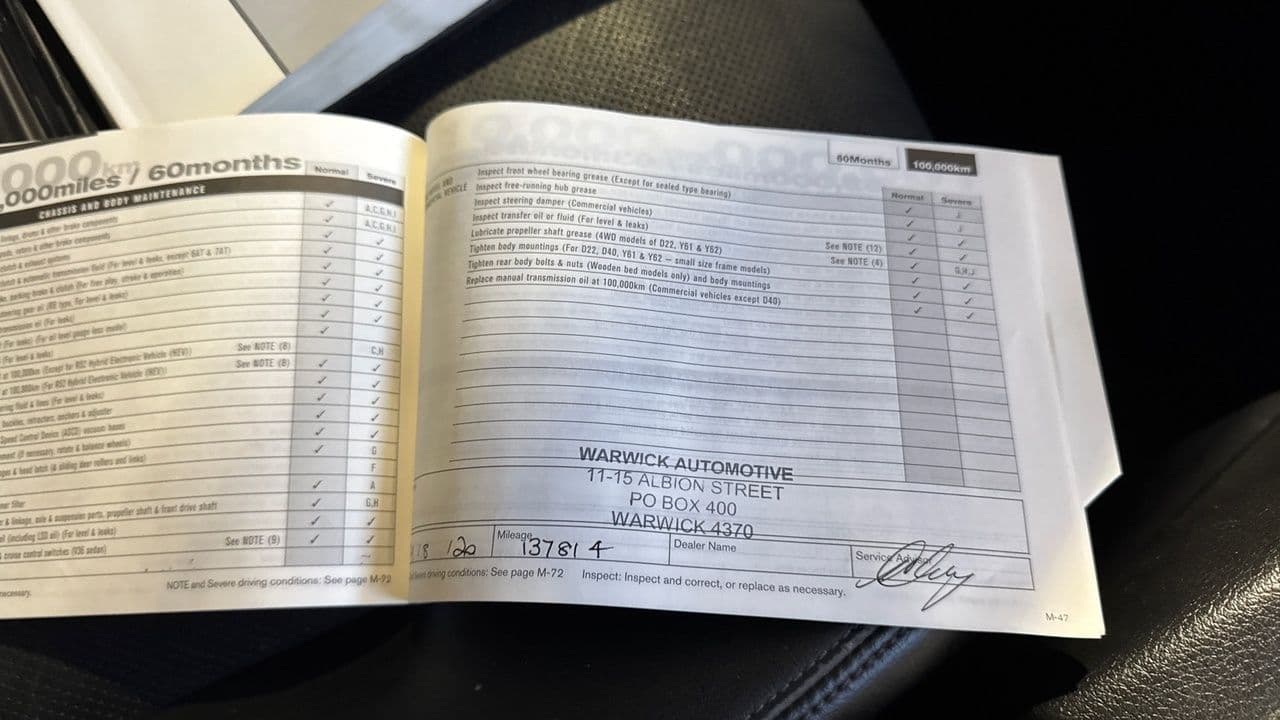 000km
,000miles / 60months
Normal Severe
CHASSIS AND BODY MAINTENANCE
linings, drums & other brake components ✓ A,C,G,H,I
pads, rotors & other brake components ✓ A,C,G,H,I
& exhaust systems ✓ ✓
clutch & automatic transmission fluid (For level & leaks, except 6AT & 7AT) ✓ ✓
parking brake & clutch (For free play, stroke & operation) ✓ ✓
steering gear oil (RB type, For level & leaks) ✓ ✓
transmission oil (For leaks) ✓ ✓
(For leaks) (For oil level gauge less model) ✓ ✓
(For level & leaks) ✓
at 100,000km (Except for RS2 Hybrid Electronic Vehicle (HEV)) See NOTE (8) C,H
at 100,000km (For RS2 Hybrid Electronic Vehicle (HEV)) See NOTE (8) ✓ ✓
fluid & lines (For level & leaks) ✓ ✓
buckles, retractors, anchors & adjuster ✓ ✓
Speed Control Device (ASCD) vacuum hoses ✓ ✓
(If necessary, rotate & balance wheels) ✓ ✓
& hood latch (& sliding door rollers and links) ✓ G
F
filter ✓ A
& linkage, axle & suspension parts, propeller shaft & front drive shaft ✓ G,H
oil (including LSD oil) (For level & leaks) ✓ ✓
& cruise control switches (V36 sedan) See NOTE (9) ✓ ✓
NOTE and Severe driving conditions: See page M-72
necessary.
60Months 100,000km
Normal Severe
VEHICLE
Inspect front wheel bearing grease (Except for sealed type bearing) ✓ J
Inspect free-running hub grease ✓ J
Inspect steering damper (Commercial vehicles) ✓ ✓
Inspect transfer oil or fluid (For level & leaks) See NOTE (12) ✓ ✓
Lubricate propeller shaft grease (4WD models of D22, Y61 & Y62) See NOTE (4) ✓ G,H,J
Tighten body mountings (For D22, D40, Y61 & Y62 – small size frame models) ✓ ✓
Tighten rear body bolts & nuts (Wooden bed models only) and body mountings ✓ ✓
Replace manual transmission oil at 100,000km (Commercial vehicles except D40) ✓ ✓
WARWICK AUTOMOTIVE
11-15 ALBION STREET
PO BOX 400
WARWICK 4370
18 120 Mileage 137814 Dealer Name Service Advisor
driving conditions: See page M-72 Inspect: Inspect and correct, or replace as necessary.
M-47